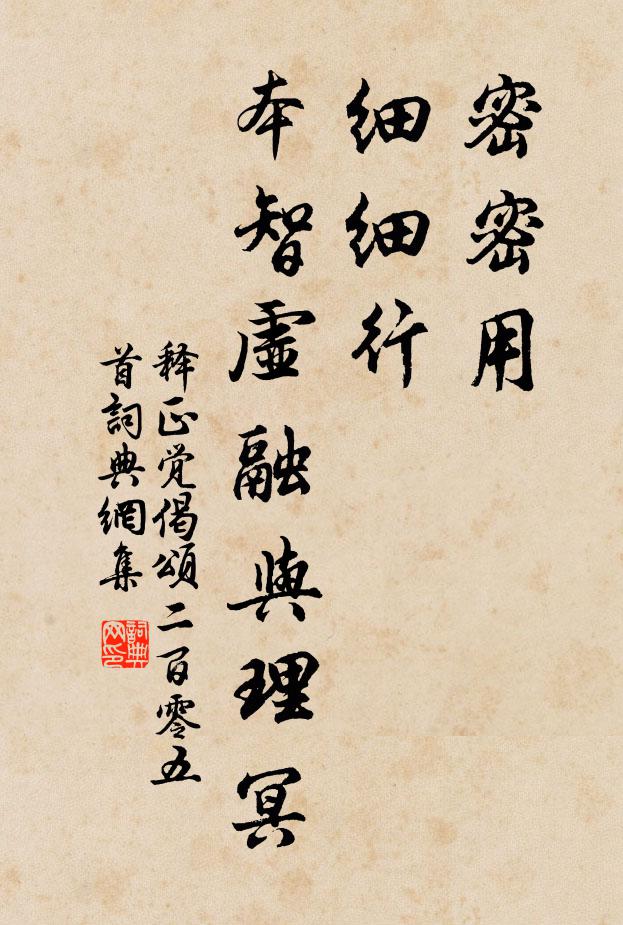 密密用
细细行
本智虛融與理冥
释正觉偈頌二百零五
首詞典網集
詞典
网印